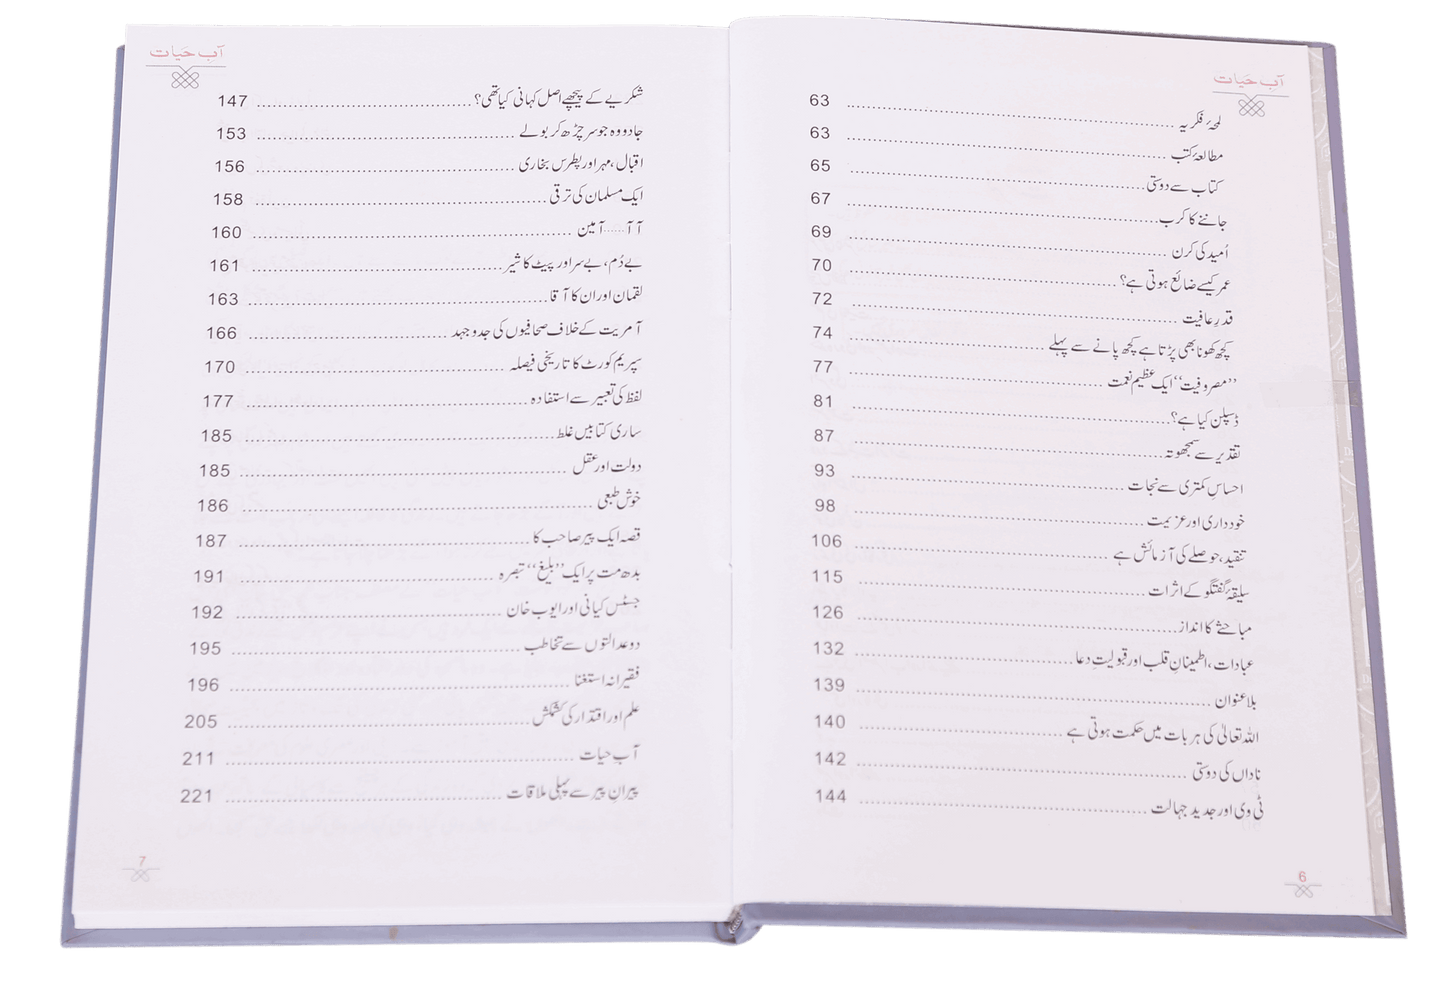 آبِ حیات
لمحۂ فکریہ ........ 63
مطالعۂ کتب ........ 63
کتاب سے دوستی ........ 65
جاننے کا کرب ........ 67
اُمید کی کرن ........ 69
عمر کیسے ضائع ہوتی ہے؟ ........ 70
قدرِ عافیت ........ 72
کچھ کھونا بھی پڑتا ہے کچھ پانے سے پہلے ........ 74
”مصروفیت“ ایک عظیم نعمت ........ 77
ڈسپلن کیا ہے؟ ........ 81
تقدیر سے سمجھوتہ ........ 87
احساسِ کمتری سے نجات ........ 93
خودداری اور عزیمت ........ 98
تنقید، حوصلے کی آزمائش ہے ........ 106
سلیقۂ گفتگو کے اثرات ........ 115
مباحثے کا انداز ........ 126
عبادات، اطمینانِ قلب اور قبولیتِ دعا ........ 132
بلاعنوان ........ 139
اللہ تعالیٰ کی ہر بات میں حکمت ہوتی ہے ........ 140
ناداں کی دوستی ........ 142
ٹی وی اور جدید جہالت ........ 144
6
آبِ حیات
شکریے کے پیچھے اصل کہانی کیا تھی؟ ........ 147
جادو وہ جو سر چڑھ کر بولے ........ 153
اقبال، مہر اور پطرس بخاری ........ 156
ایک مسلمان کی ترقی ........ 158
آ آ......آمین ........ 160
بے دُم، بے سر اور پیٹ کا شیر ........ 161
لقمان اور ان کا آقا ........ 163
آمریت کے خلاف صحافیوں کی جدوجہد ........ 166
سپریم کورٹ کا تاریخی فیصلہ ........ 170
لفظ کی تعبیر سے استفادہ ........ 177
ساری کتابیں غلط ........ 185
دولت اور عقل ........ 185
خوش طبعی ........ 186
قصہ ایک پیر صاحب کا ........ 187
بدھ مت پر ایک ”بلیغ“ تبصرہ ........ 191
جسٹس کیانی اور ایوب خان ........ 192
دو عدالتوں سے تخاطب ........ 195
فقیرانہ استغنا ........ 196
علم اور اقتدار کی کشمکش ........ 205
آب حیات ........ 211
پیرانِ پیر سے پہلی ملاقات ........ 221
7